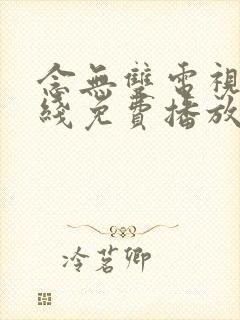 念無雙電視
綫免費播放
冷茗卿